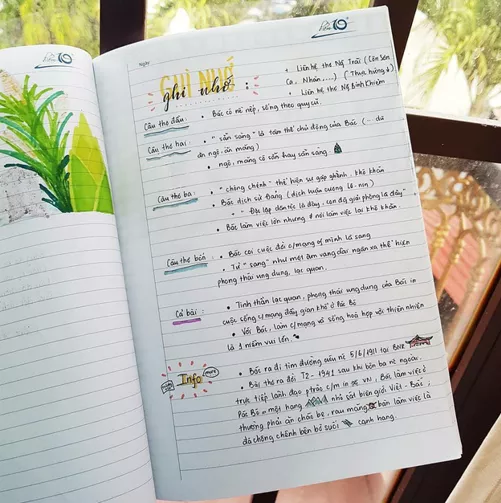 Ngày
GHI NHỚ
ghi nhớ :
• Liên hệ thơ Ng Trãi (Côn Sơn
Ca, Nhàn....) (Thực hưởng á)
• Liên hệ thơ Ng Bỉnh Khiêm
Câu thơ đầu : • Bác có nề nếp, sống theo quy củ.
Câu thơ hai : • "sẵn sàng" là tâm thế chủ động của Bác (... dù
ăn ngô - ăn măng)
• ngô, măng có sẵn hay sẵn sàng
Câu thơ ba : • "chông chênh" thể hiện sự gập ghềnh, khó khăn
• Bác dịch sử Đảng (dịch luận cương Lê-nin)
- "Độc lập dân tộc là đúng, con đg giải phóng là đúng"
• Bác làm việc lớn nhưng nói làm việc lại khó khăn
Câu thơ bốn : • Bác coi cuộc đời c/mạng of mình là sang
• Từ "sang" như một âm vang dài ngân xa thể hiện
phong thái ung dung, lạc quan.
Cả bài : • Tinh thần lạc quan, phong thái ung dung của Bác in
cuộc sống c/mạng đầy gian khổ ở Pác Bó
• Với Bác, làm c/mạng và sống hoà hợp với thiên nhiên
là 1 niềm vui lớn.
Info • Bác ra đi tìm đường cứu nc 5/6/1911 tại BNR
• Bài thơ ra đời T2 - 1941 sau khi bôn ba nc ngoài.
trực tiếp lãnh đạo ptrào c/m in nc VN, Bác làm việc ở
Pác Bó - một hang nhỏ sát biên giới Việt - Bác ;
thường phải ăn cháo bẹ, rau măng bàn làm việc là
đá chông chênh bên bờ suối cạnh hang.